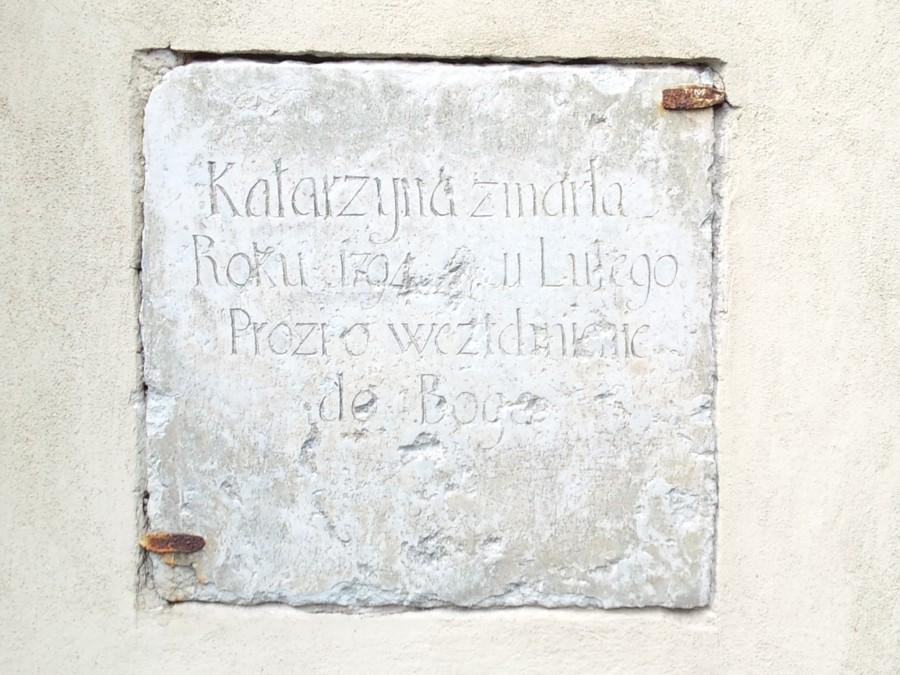 Katarzyna zmarła
Roku 1794 u Lutego
Prozi o wczidmienie
do Boga